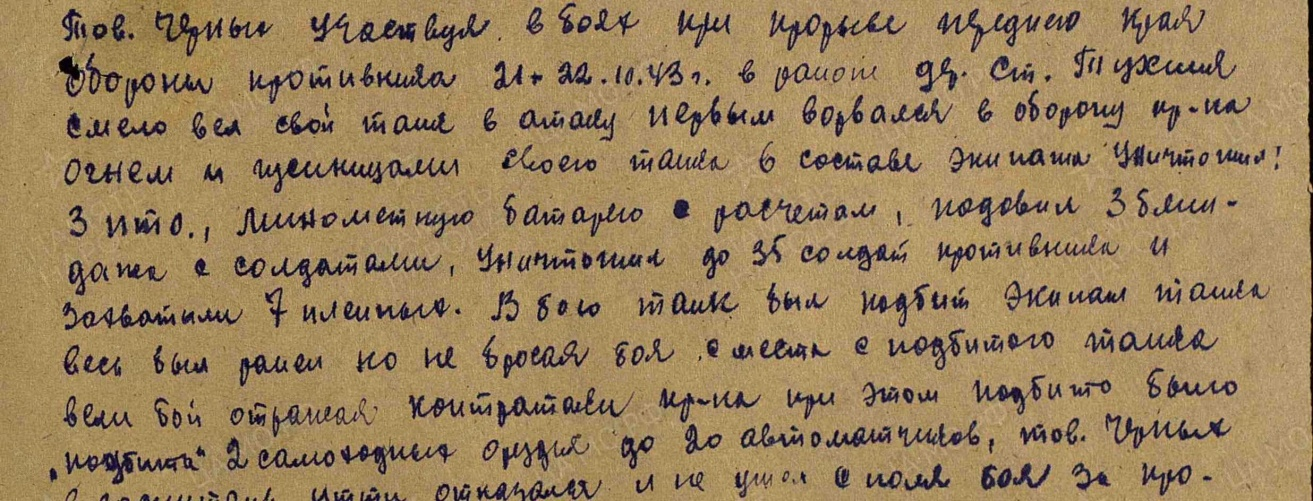 Тов. Черных участвуя в боях при прорыве переднего края
обороны противника 21-22.10.43 г. в районе др. Ст. Тухиня
смело вел свой танк в атаку первым ворвался в оборону пр-ка
огнем и гусеницами своего танка в составе экипажа уничтожил:
3 пто., минометную батарею с расчетам, подовил 3 блин-
дажа с солдатами, уничтожил до 35 солдат противника и
захватили 7 пленных. В бою танк был подбит экипаж танка
весь был ранен но не бросая боя с места с подбитого танка
вели бой отражая контратаки пр-ка при этом подбито было
„подбита" 2 самоходных орудия до 20 автоматчиков, тов. Черных
итти отказался и не ушел с поля боя за про-